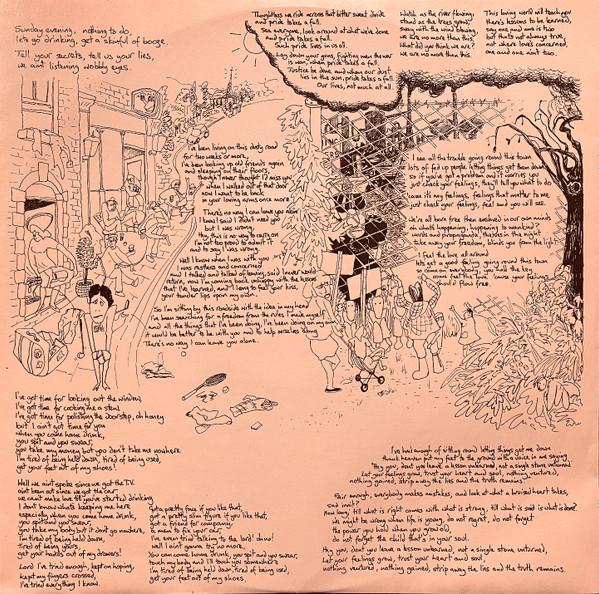 Sunday evening, nothing to do,
let's go drinking, get a skinful of booze.
Tell your secrets, tell us your lies,
we aint listening wobbly eyes.
Thoughtless we ride across that bitter sweet divide
and pride takes a fall.
See everyone, look around at what we've done
and pride takes a fall.
Such pride lives in us all.
Lay down your gong, fighting men there won
is won, when pride takes a fall.
Justice be done and when our dust
lies in the sun, pride takes a fall.
Our lives, not much at all.
Watch as the river flowing,
stand as the trees grow,
sway with the wind blowing
we are no more than this.
What did you think we are?
We are no more than this.
This loving world will teach you
there's lessons to be learned,
say one and one is two
but that's not always true,
not where love's concerned,
one and one aint two.
I've been living on this dusty road
for two weeks or more,
I've been looking up old friends again
and sleeping on their floors,
and I never thought I'd miss you
when I walked out of that door
now I want to be back
in your loving arms once more
There's no way I can leave you now
I know I said I didn't need you
but I was wrong.
Hey, this is no way to carry on
I'm not too proud to admit it
and to say I was wrong.
Well I know when I was with you
I was restless and concerned
and I talked and talked of leaving, said I never would
return, now I'm coming back unhappy with the lesson
that I've learned, and I long to feel your kiss,
your tender lips upon my own.
So I'm sitting by this roadside with the idea in my head
I've been searching for a freedom from the rules I made myself
and all the things that I've been doing, I've been doing on my own
it would be better to be with you and to help ourselves along
There's no way I can leave you alone.
I see all the trouble going round this town
lots of fed up people letting things get them down,
so if you've got a problem and it worries you
just check your feelings, they'll tell you what to do
'cause it's my feelings, feelings that matter to me
just check your feelings, feel and you will see.
We're all born free then enslaved in our own minds
oh what's happening, happening to mankind?
words and propaganda, thistles in the night
take away your freedom, blinds you from the light
I feel the love all around
I've got a good feeling going round this town
so come on everybody, you hold the key
come feel the love 'cause your feelings
should flow free.
I've got time for looking out the window,
I've got time for cooking me a stew
I've got time for polishing the doorstep, oh honey
but I aint got time for you
when you come home drunk,
you spit and you swear,
you take my money but you don't take me nowhere
I'm tired of being held down, tired of being used,
get your feet out of my shoes!
Well we aint spoke since we got the T.V.
aint been out since we got the car
we can't make love till you've started drinking
I don't know what's keeping me here
especially when you come home drunk,
you spit and you swear,
you take my body but it don't go nowhere,
I'm tired of being held down,
tired of being yours,
get your hands out of my drawers!
Lord I've tried enough, kept on hoping,
kept my fingers crossed,
I've tried everything I know.
Got a pretty face if you like that,
got a pretty slim figure if you like that,
got a friend for company,
a maid for your tea,
I'm even tried talking to the lord above!
well I aint gonna try no more,
You come home drunk, you spit and you swear,
touch my body and I'll touch you somewhere
I'm tired of being held down, tired of being used,
get your feet out of my shoes.
I've had enough of sitting round letting things get me down
thank heaven put my feet to the ground with a voice in me saying
"Hey you, don't you leave a lesson unlearned, not a single stone unturned
Let your feelings grow, trust your heart and soul, nothing ventured,
nothing gained, strip away the lies and the truth remains.
Fair enough, everybody makes mistakes, and look at what a bruised heart takes,
sad innit?
How long, till what is right comes with what is strong, till what is said is what is done?
we might be wrong when life is young, do not regret, do not forget
the power you hold when you grow old,
do not forget the child that's in your soul.
Hey you, don't you leave a lesson unlearned, not a single stone unturned,
Let your feelings grow, trust your heart and soul,
nothing ventured, nothing gained, strip away the lies and the truth remains.